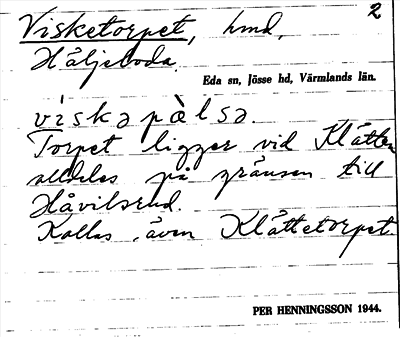 2
Visketorpet, hmd,
Häljeboda.
Eda sn, Jösse hd, Värmlands län.
vískəpὰlsə.
Torpet ligger vid Klätten
alldeles på gränsen till
Håvilsrud.
Kallas även Klättetorpet.
PER HENNINGSSON 1944.